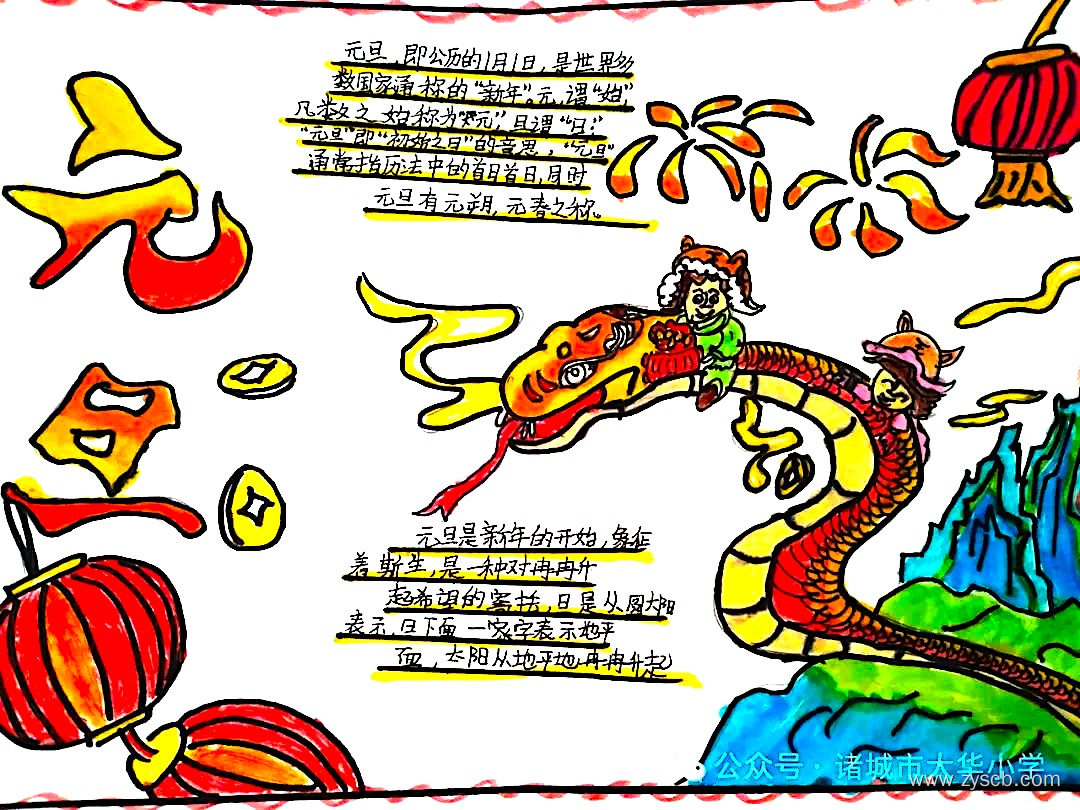 元旦
元旦，即公历的1月1日，是世界多
数国家通称的“新年”。元，谓“始”，
凡数之始称为“元”；旦谓“日”；
“元旦”即“初始之日”的意思，“元旦”
通常指历法中的首月首日，
元旦有元朔，元春之称。
元旦是新年的开始，象征
着新生，是一种对冉冉升
起希望的寄托，日是从圆太阳
表示，旦下面一家字表示地平
面，太阳从地平地冉冉升起
公众号·诸城市大华小学
www.zyscb.com